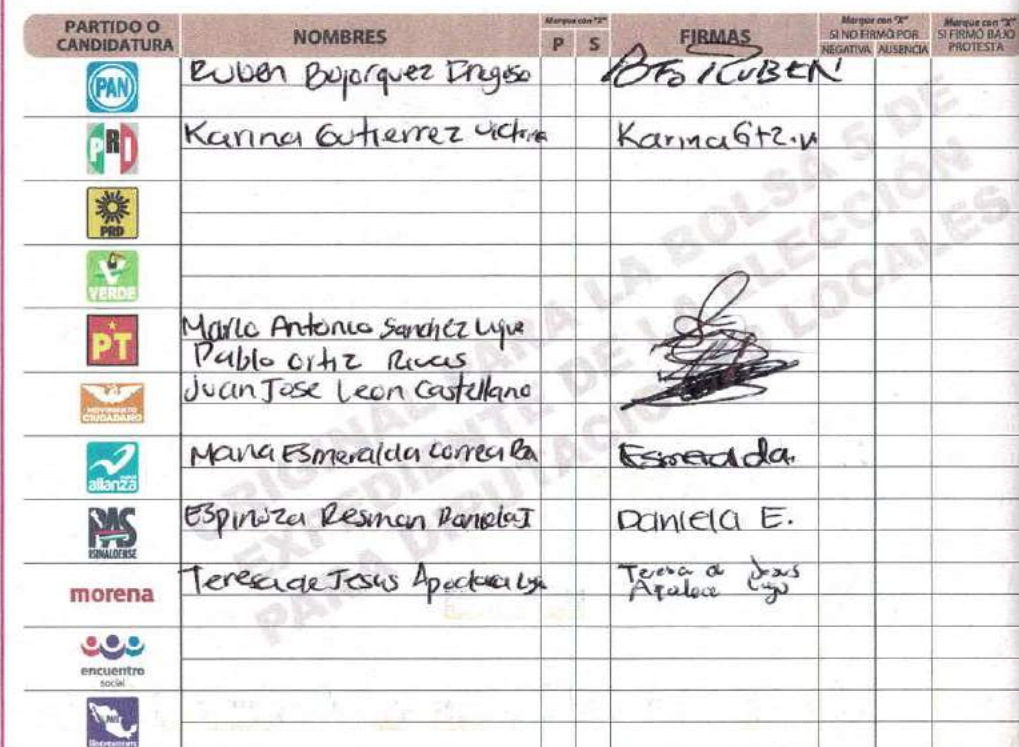 PARTIDO O CANDIDATURA NOMBRES Marque con "X" P S FIRMAS Marque con "X" SI NO FIRMÓ POR NEGATIVA AUSENCIA Marque con "X" SI FIRMÓ BAJO PROTESTA
PAN Ruben Bojorquez BEO RUBEN
PRI Karina Gutierrez Victoria Karina Gtz. V
PRD
VERDE
PT Mario Antonio Sanchez
Pablo Ortiz Rivas
MOVIMIENTO CIUDADANO Juan Jose Leon Castellano
alianza Maria Esmeralda Correa Esmeralda.
PAS SINALOENSE Espinoza Resman Daniela I Daniela E.
morena Teresa de Jesus Apodaca Teresa d Jesus
Lugo
encuentro social
ORIGINAL PARA LA BOLSA 5 DE
EXPEDIENTE DE LA ELECCIÓN
PARA DIPUTACIONES LOCALES